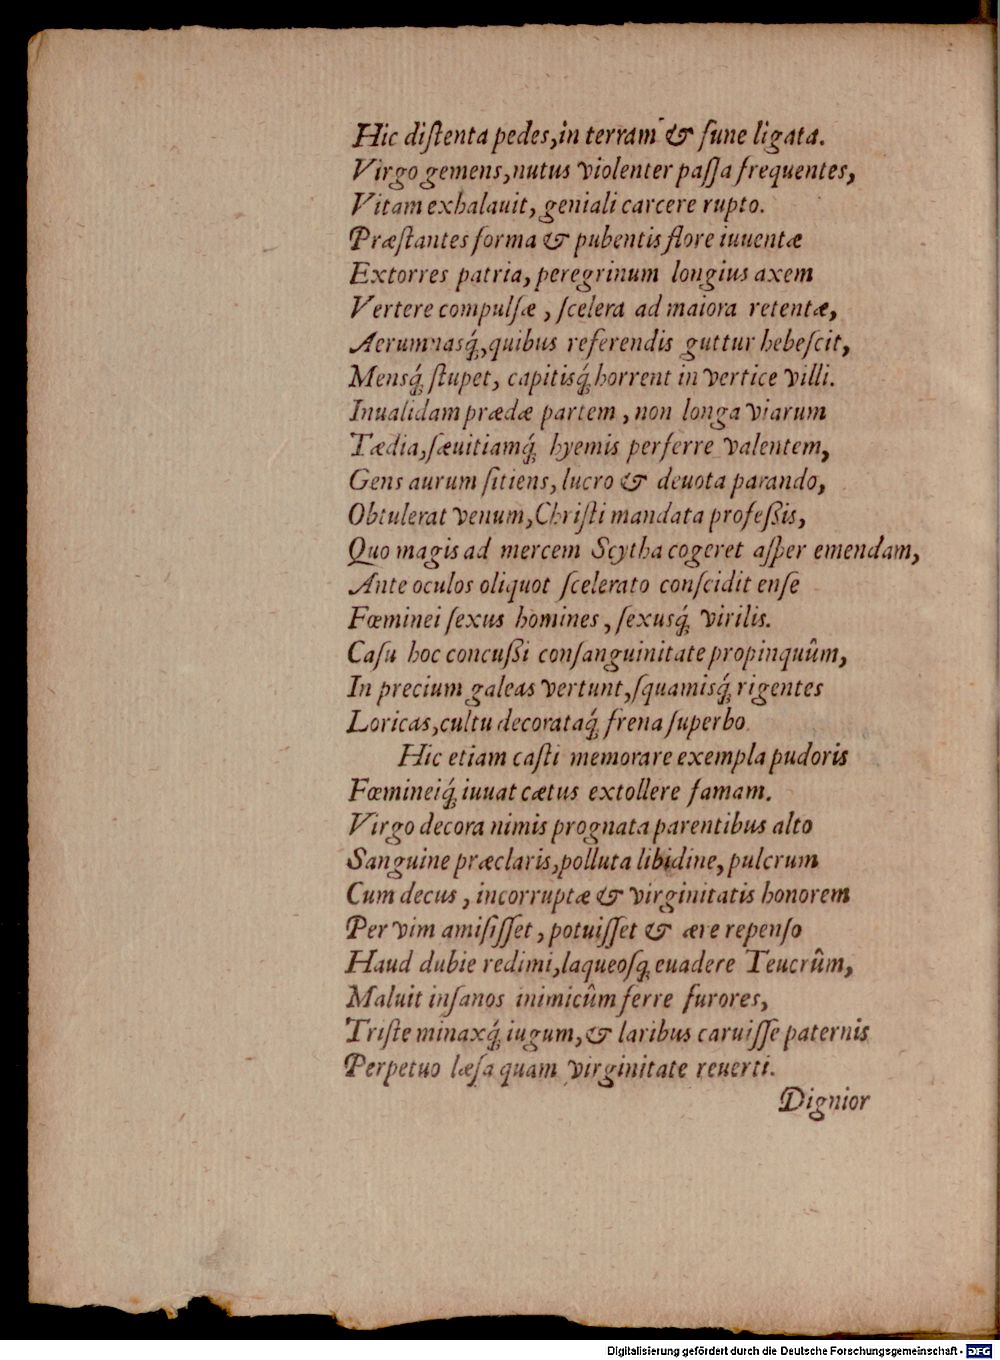 Hic diſtenta pedes,in terram & fune ligata.
Virgo gemens,nutus violenter paſſa frequentes,
Vitam exhalauit, geniali carcere rupto.
Præſtantes forma & pubentis flore iuuentæ
Extorres patria, peregrinum longius axem
Vertere compulſæ , ſcelera ad maiora retentæ,
Aerumnasq́;,quibus referendis guttur hebeſcit,
Mensq́; ſtupet, capitisq́; horrent in vertice villi.
Inualidam prædæ partem , non longa viarum
Tædia,ſæuitiamq́; hyemis perferre valentem,
Gens aurum ſitiens, lucro & deuota parando,
Obtulerat venum,Chriſti mandata profeßis,
Quo magis ad mercem Scytha cogeret aſper emendam,
Ante oculos oliquot ſcelerato conſcidit enſe
Fœminei ſexus homines , ſexusq́; virilis.
Caſu hoc concußi conſanguinitate propinquûm,
In precium galeas vertunt,ſquamisq́; rigentes
Loricas,cultu decorataq́; frena ſuperbo.
Hic etiam caſti memorare exempla pudoris
Fœmineiq́; iuuat cætus extollere famam.
Virgo decora nimis prognata parentibus alto
Sanguine præclaris,polluta libidine, pulcrum
Cum decus , incorruptæ & virginitatis honorem
Per vim amiſiſſet , potuiſſet & ære repenſo
Haud dubie redimi,laqueoſq; euadere Teucrûm,
Maluit inſanos inimicûm ferre furores,
Triſte minaxq́; iugum, & laribus caruiſſe paternis
Perpetuo læſa quam virginitate reuerti.
Dignior
Digitalisierung gefördert durch die Deutsche Forschungsgemeinschaft - DFG